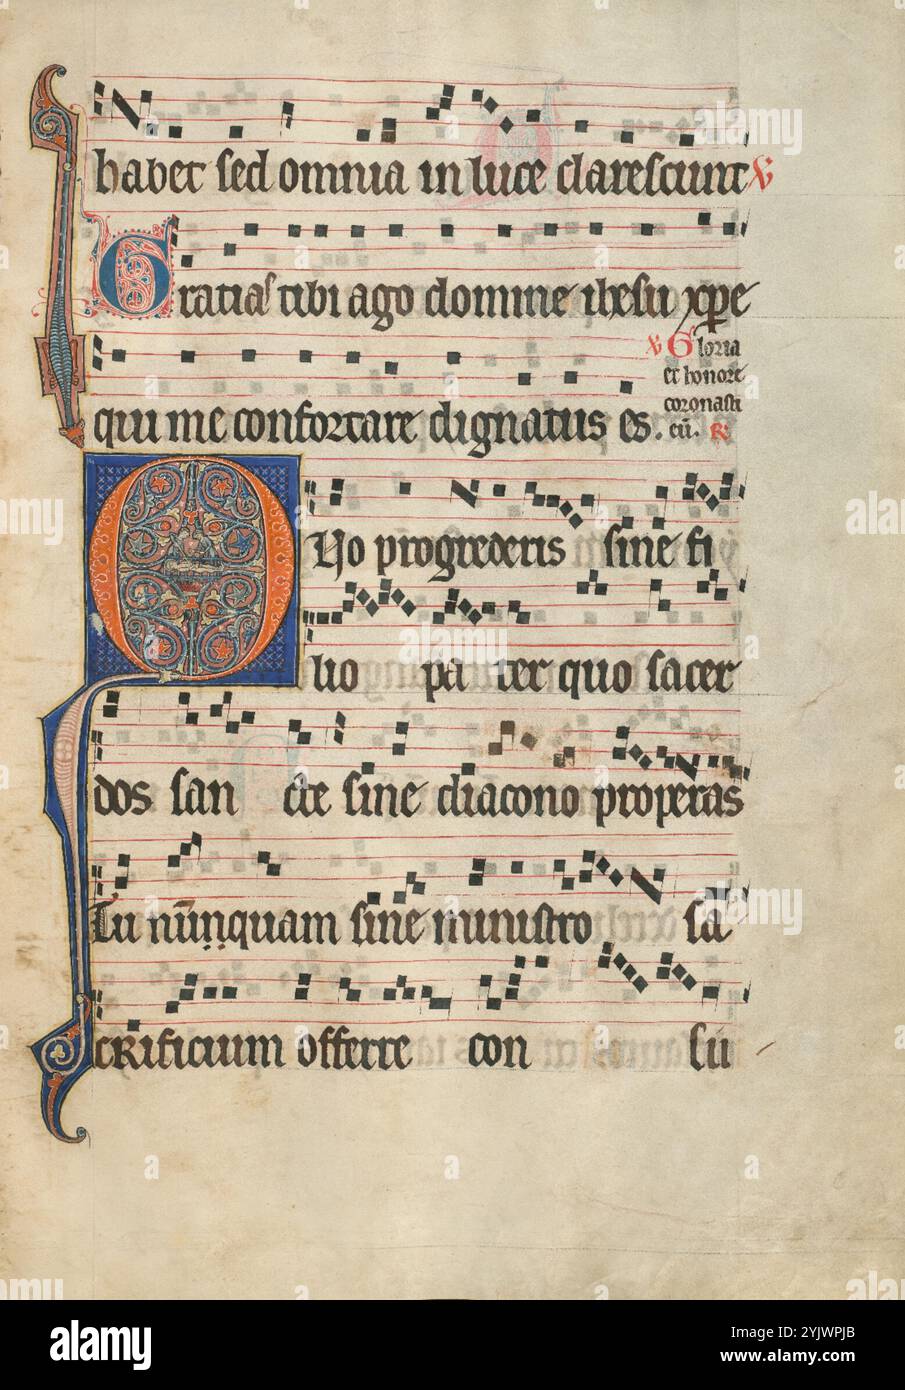 habet sed omnia in luce clarescunt ℣
Gratias tibi ago domine ihesu xpe
℣ Gloria
et honore
coronasti
eū. ℟
qui me confortare dignatus es.
Quo progrederis sine fi
lio pa ter quo sacer
dos san cte sine diacono properas
Tu nūnquam sine ministro sa
crificium offerre con su
alamy
Image ID: 2YJWPJB
www.alamy.com